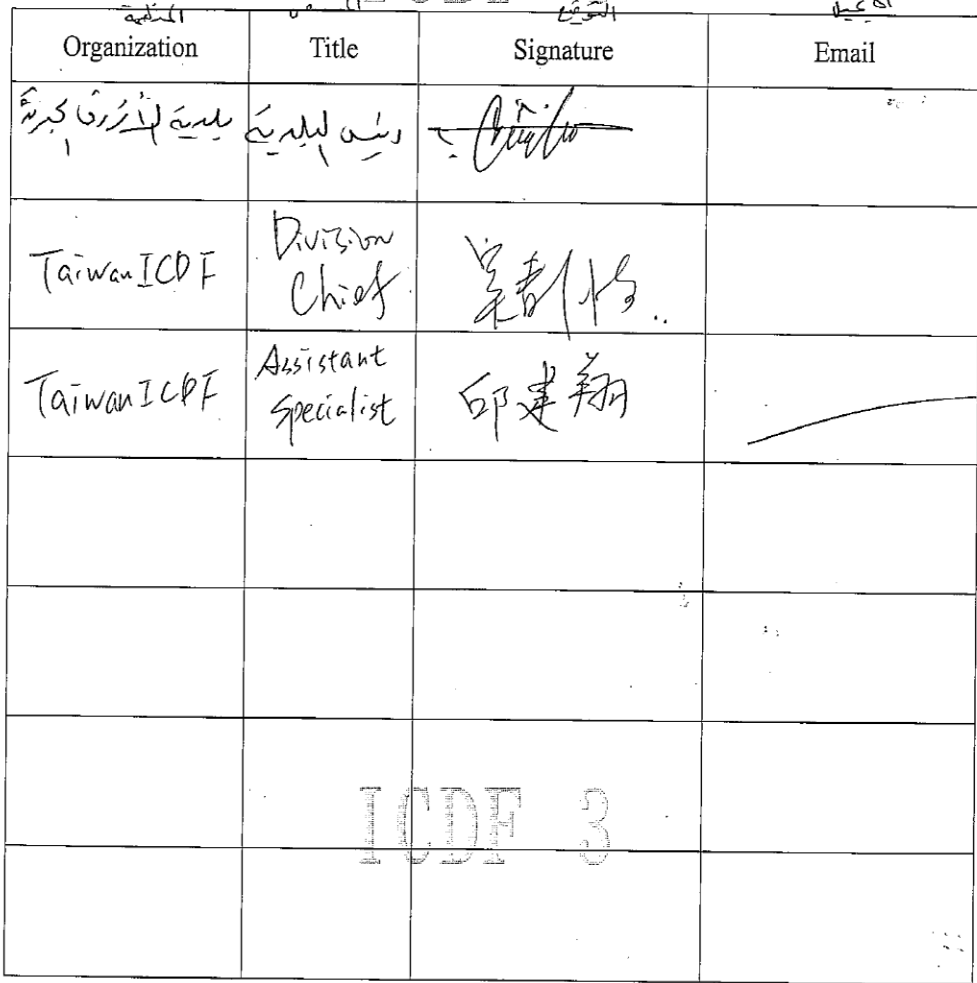 ICDF
المنظمة التوقيع الايميل
Organization Title Signature Email
بلدية الأزرق الجديدة رئيس البلدية
TaiwanICDF Division Chief
TaiwanICDF Assistant Specialist 邱建翔
ICDF 3